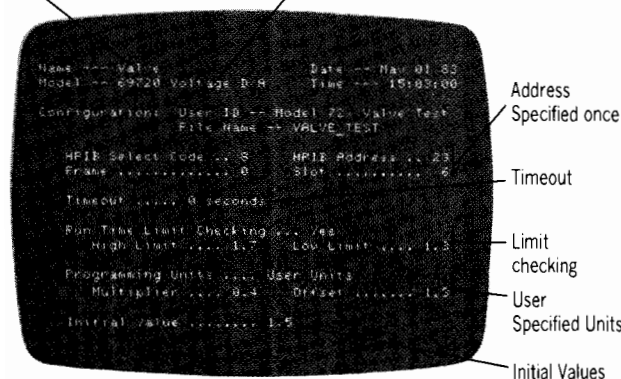 Name --- Valve Date -- May 01 83
Model -- 69720 Voltage D A Time --- 15:03:00
Configuration: User ID -- Model 72, Valve Test
File Name -- VALVE_TEST
HPIB Select Code .. 8 HPIB Address .. 23
Frame ............. 0 Slot .......... 6
Timeout ..... 0 seconds
Run Time Limit Checking ... Yes
High Limit .... 1.7 Low Limit .... 1.3
Programming Units .... User Units
Multiplier .... 0.4 Offset ....... 1.5
Initial Value ........ 1.5
Address
Specified once
Timeout
Limit
checking
User
Specified Units
Initial Values